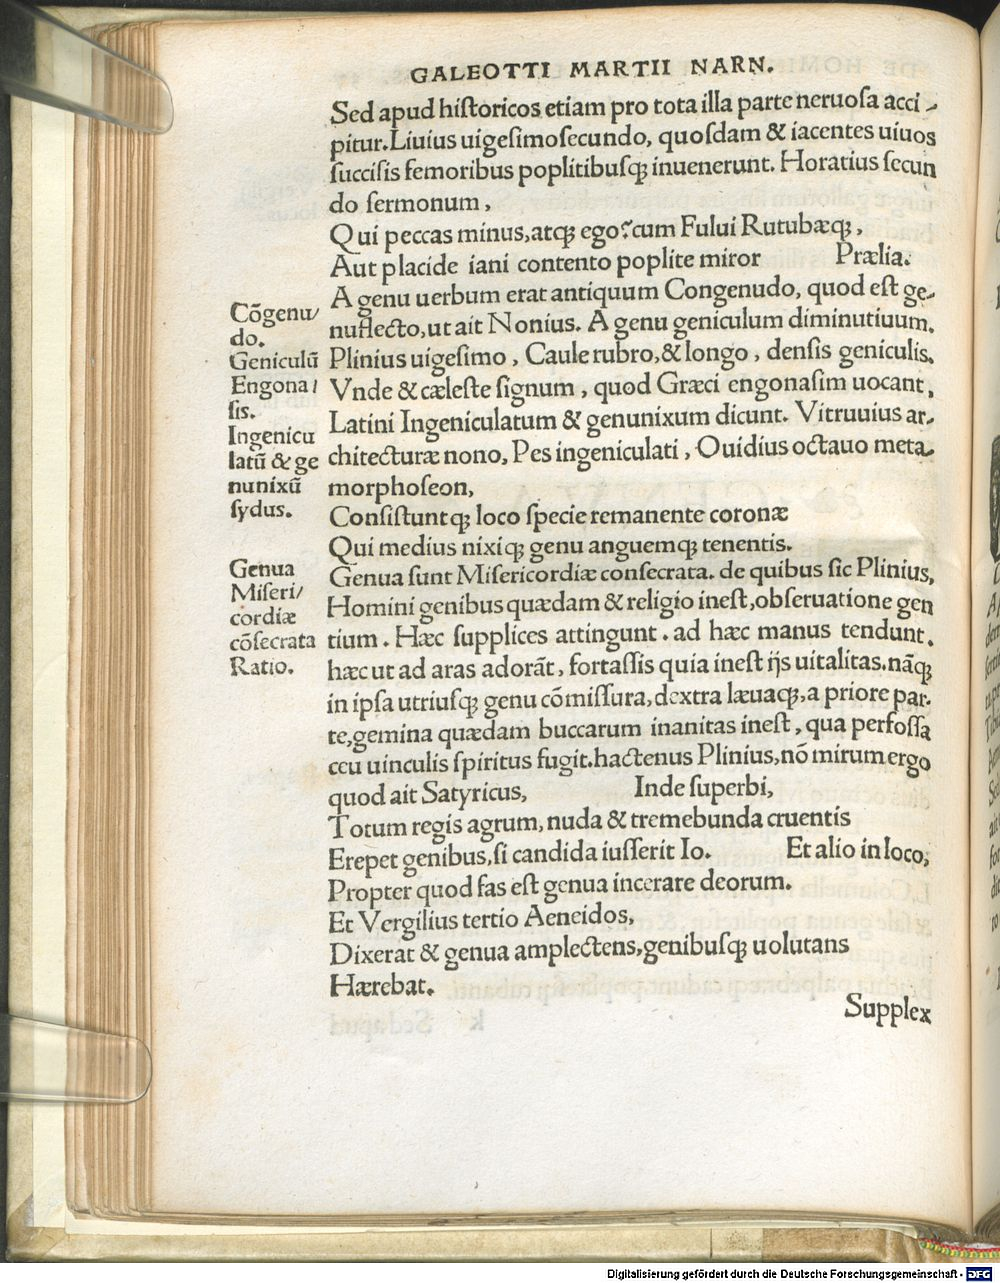 GALEOTTI MARTII NARN.
Sed apud hiſtoricos etiam pro tota illa parte neruoſa acci-
pitur. Liuius uigeſimoſecundo, quoſdam & iacentes uiuos
ſucciſis femoribus poplitibuſqꝫ inuenerunt. Horatius ſecun
do ſermonum,
Qui peccas minus, atqꝫ ego? cum Fului Rutubæqꝫ,
Aut placide iani contento poplite miror Prælia.
A genu uerbum erat antiquum Congenudo, quod eſt ge-
nuflecto, ut ait Nonius. A genu geniculum diminutiuum.
Plinius uigeſimo, Caule rubro, & longo, denſis geniculis.
Vnde & cæleſte ſignum, quod Græci engonaſim uocant,
Latini Ingeniculatum & genunixum dicunt. Vitruuius ar-
chitecturæ nono, Pes ingeniculati, Ouidius octauo meta-
morphoſeon,
Conſiſtuntqꝫ loco ſpecie remanente coronæ
Qui medius nixiqꝫ genu anguemqꝫ tenentis.
Genua ſunt Miſericordiæ conſecrata. de quibus ſic Plinius,
Homini genibus quædam & religio ineſt, obſeruatione gen
tium. Hæc ſupplices attingunt. ad hæc manus tendunt.
hæc ut ad aras adorāt, fortaſſis quia ineſt ijs uitalitas. nāqꝫ
in ipſa utriuſqꝫ genu cōmiſſura, dextra læuaqꝫ, a priore par-
te, gemina quædam buccarum inanitas ineſt, qua perfoſſa
ceu uinculis ſpiritus fugit. hactenus Plinius, nō mirum ergo
quod ait Satyricus, Inde ſuperbi,
Totum regis agrum, nuda & tremebunda cruentis
Erepet genibus, ſi candida iuſſerit Io. Et alio in loco,
Propter quod fas eſt genua incerare deorum.
Et Vergilius tertio Aeneidos,
Dixerat & genua amplectens, genibuſqꝫ uolutans
Hærebat.
Supplex
Cōgenu/
do.
Geniculū
Engona/
ſis.
Ingenicu
latū & ge
nunixū
ſydus.
Genua
Miſeri/
cordiæ
cōſecrata
Ratio.
Digitalisierung gefördert durch die Deutsche Forschungsgemeinschaft - DFG